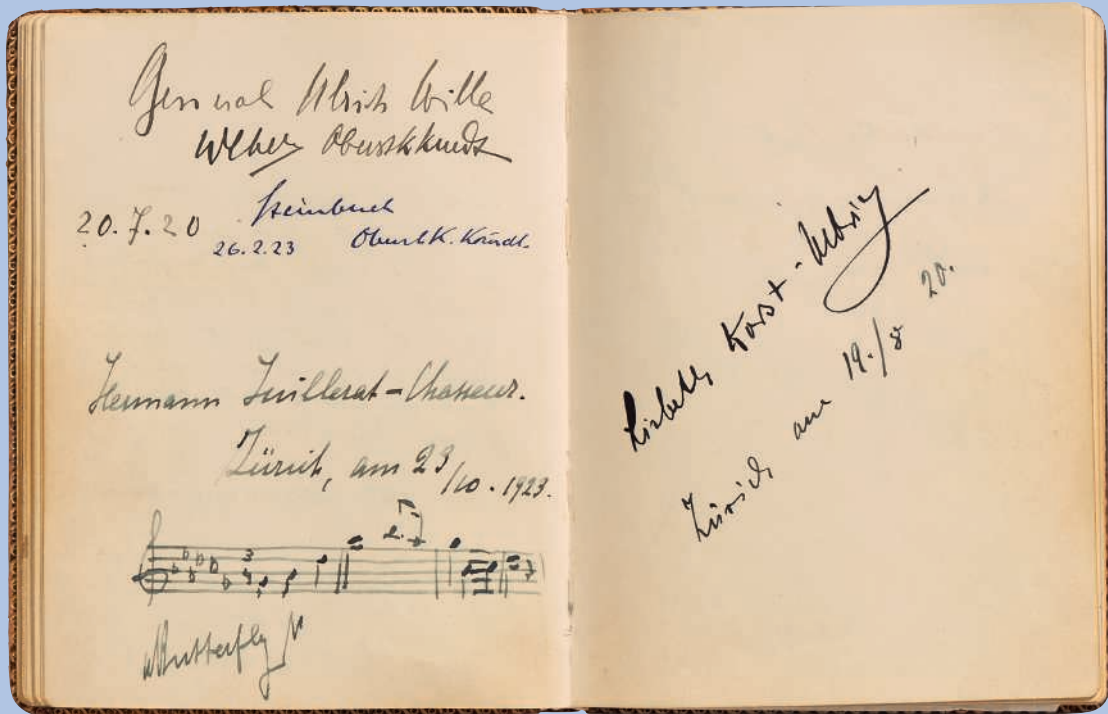 General Ulrich Wille
Weber Oberstkkmdt
20.7.20
Steinbuch
26.2.23 Oberst K. Kommdt.
Hermann Juillerat-Chasseur.
Zürich, am 23/10. 1923.
3
4
"Butterfly"
Lisbeth Korst-Ulbrig
Zürich am 19./8 20.